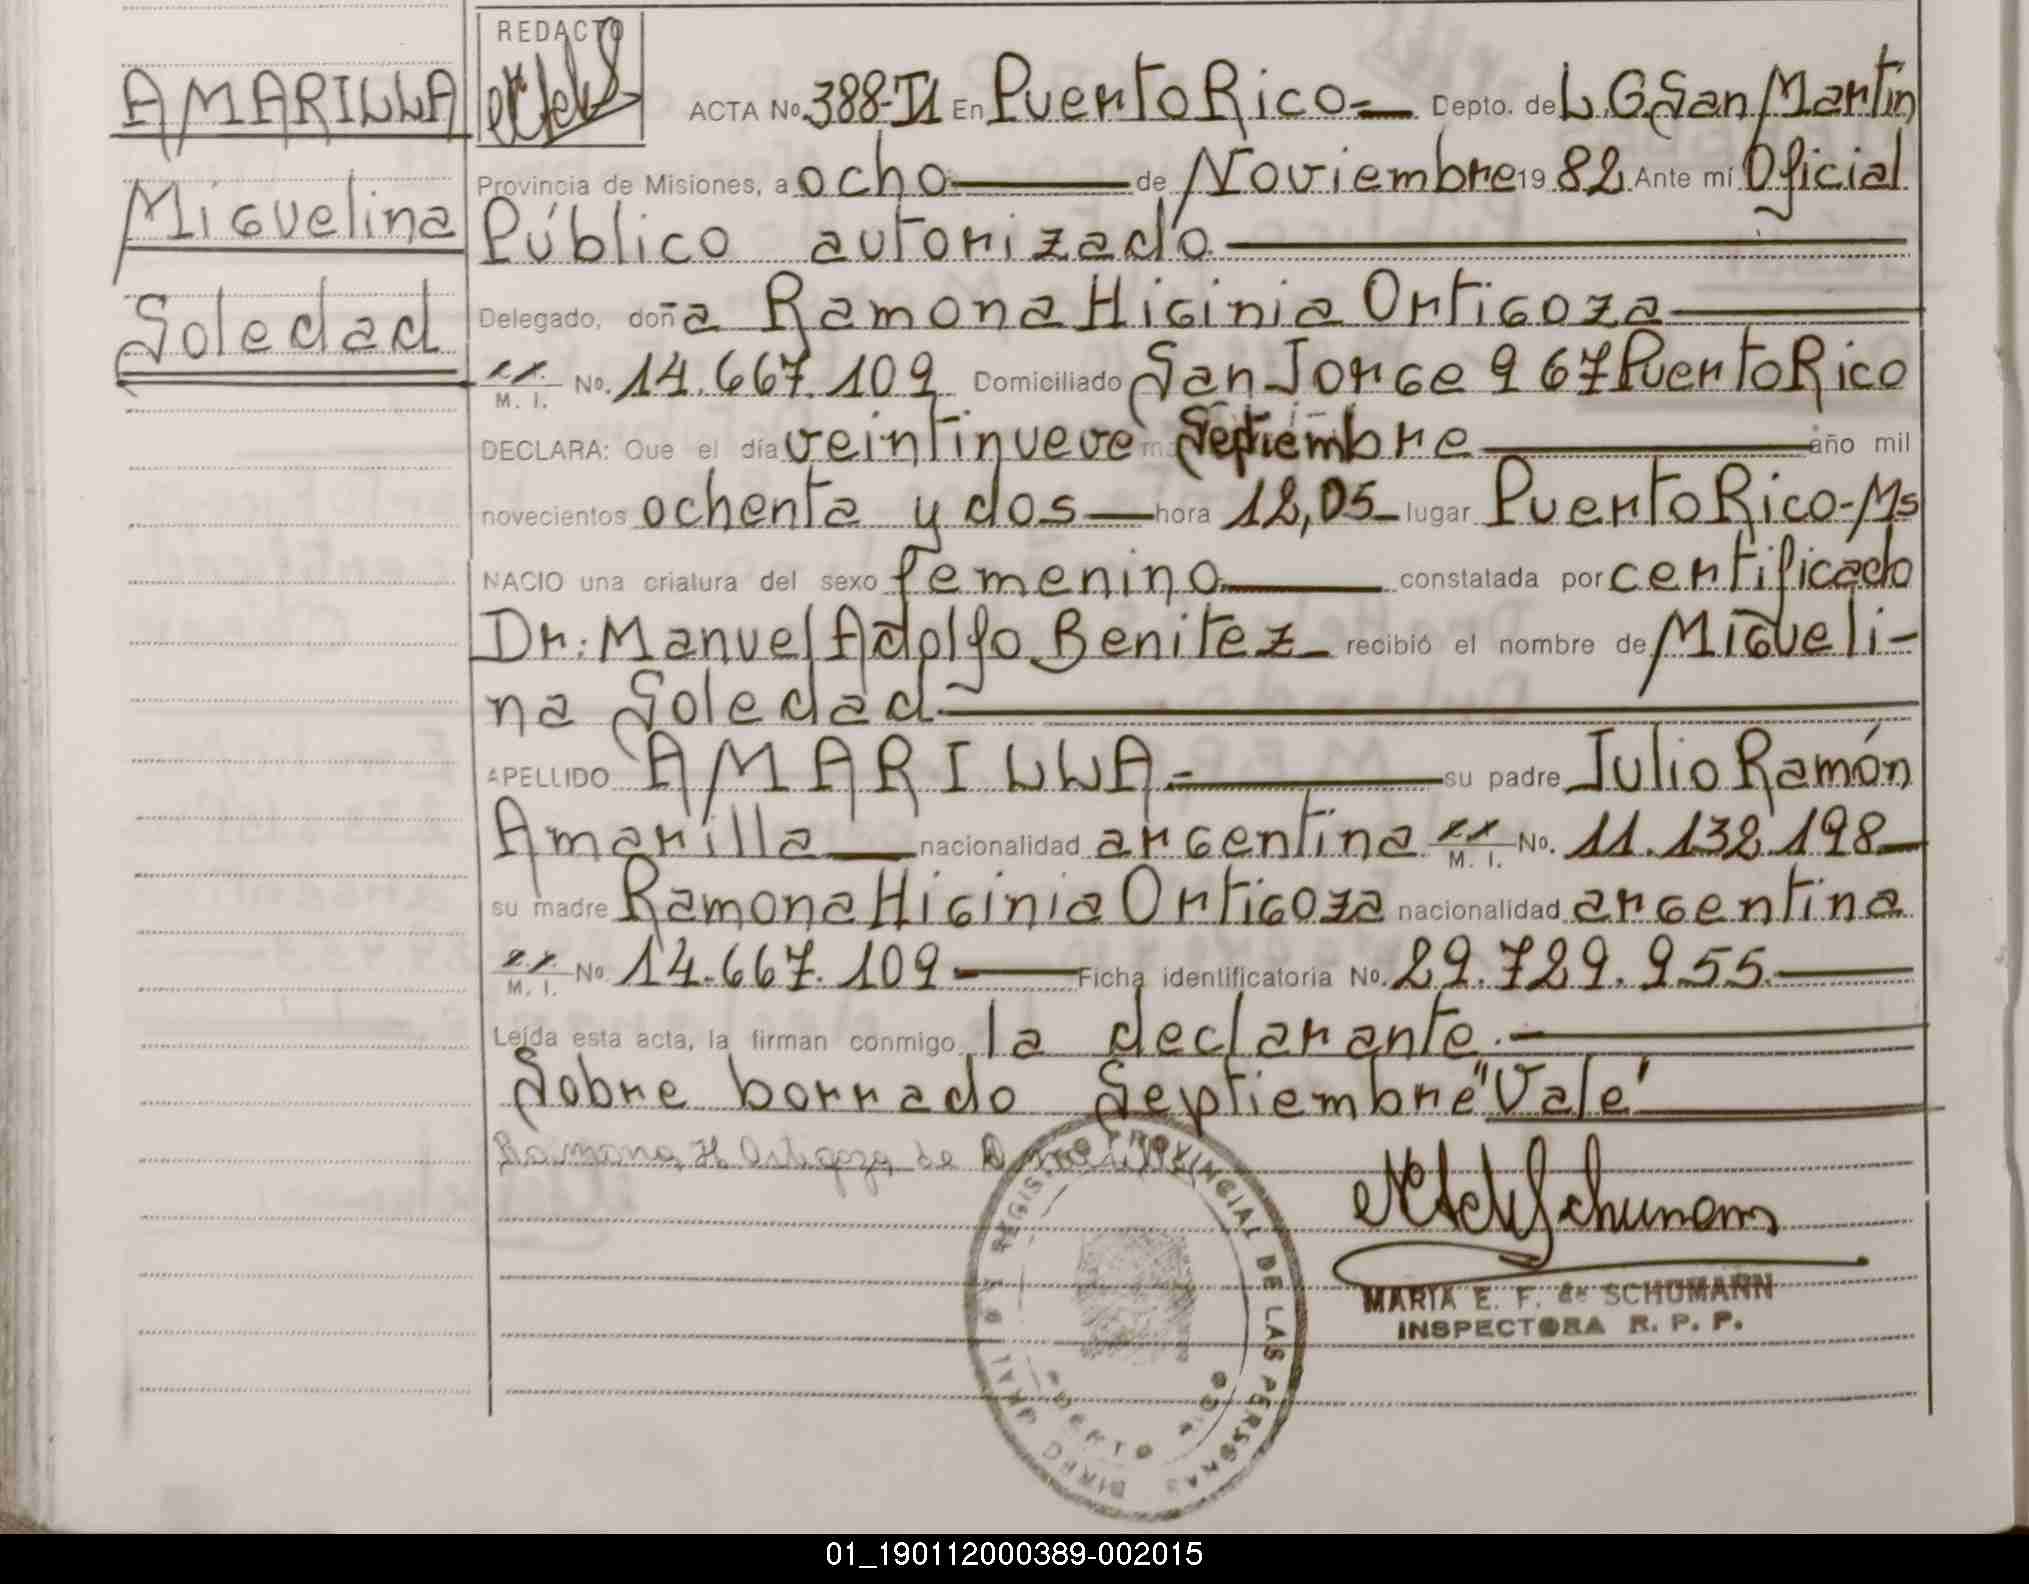 AMARILLA
Miguelina
Soledad
REDACTO
ACTA No. 388-TI En Puerto Rico=— Depto. de L.G.San Martin
Provincia de Misiones, a ocho — de Noviembre 1982 Ante mi Oficial
Público autorizado.—
Delegado, doña Ramona Higinia Ortigoza—
M. I. No. 14.667.109 Domiciliado San Jorge 967 Puerto Rico
DECLARA: Que el día veintinueve m Septiembre — año mil
novecientos ochenta y dos — hora 12,05 — lugar Puerto Rico-Ms
NACIO una criatura del sexo femenino — constatada por certificado
Dr: Manuel Adolfo Benitez — recibió el nombre de Migueli-
na Soledad.—
APELLIDO AMARILLA.= — su padre Julio Ramón
Amarilla — nacionalidad argentina M. I. No. 11.132.198—
su madre Ramona Higinia Ortigoza nacionalidad argentina
M. I. No 14.667.109 — Ficha identificatoria No. 29.729.955.—
Leída esta acta, la firman conmigo la declarante.—
Sobre borrado Septiembre "Vale"
Ramona H. Ortigoza de Amarilla
REGISTRO PROVINCIAL DE LAS PERSONAS
PUERTO RICO
MARIA E. F. de SCHUMANN
INSPECTORA R. P. P.
01_190112000389-002015